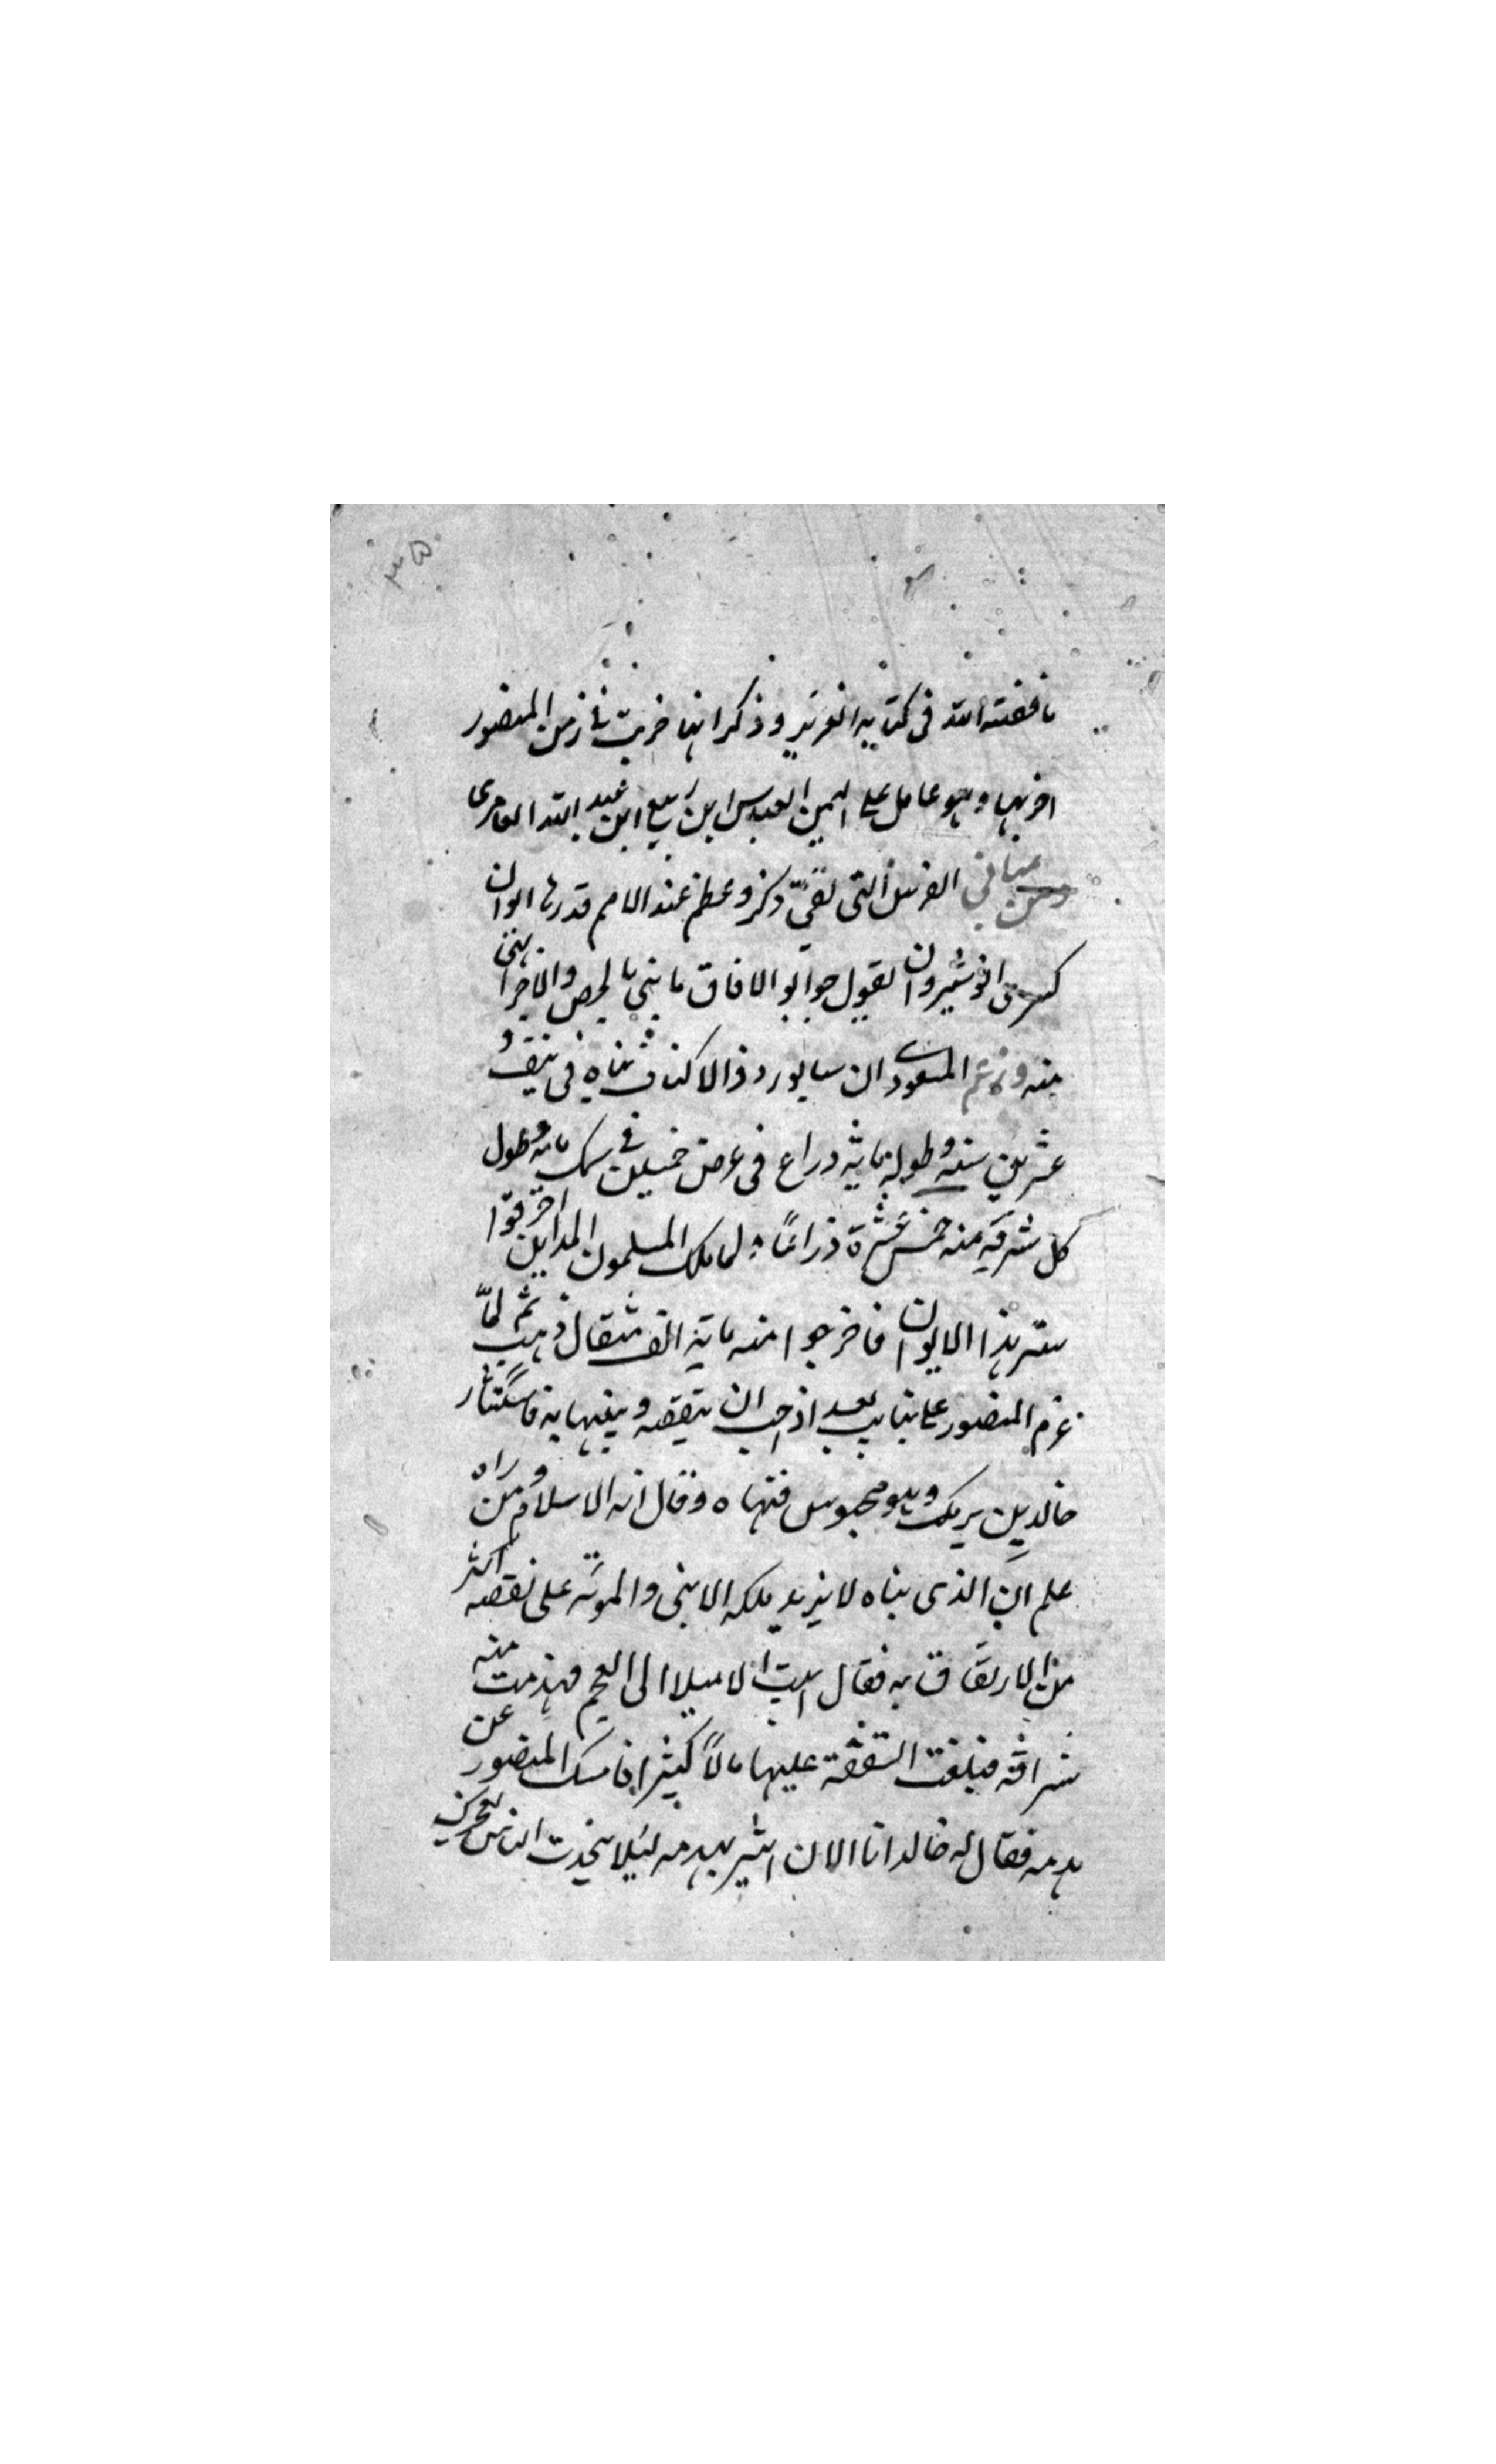 ما قصته الله فى كتابه العزيز و ذكر انها خربت فى زمن المنصور
اخربها و هو عامل على اليمن العباس ابن ربيع ابن عبد الله العامرى
ومن مبانى الفرس التى بقى ذكره وعظم عند الامم قدرها ايوان
كسرى انوشيروان يقول جوابو الافاق ما بنى بالجص والاجر ابنى
منه وزعم المسعودى ان سابور ذو الاكتاف بناه فى نيف و
عشرين سنه و طوله ماية ذراع فى عرض خمسين فى سمك مائه و طول
كل شرفه منه خمس عشرة ذراعًا و لما ملك المسلمون المداين احرقوا
ستر هذا الايوان فاخرجوا منه ماية الف مثقال ذهب ثم لمّا
عزم المنصور على بنا بغداد احب ان ينقضه و يبنيها به فاستشار
خالد بن برمك و هو محبوس فنهاه وقال انه الاسلام و من راه
علم ان الذى بناه لا يزيد ملكه الا نبى والمونه على نقضه اكثر
من الارتفاق به فقال ابيت الا ميلا الى العجم فهدمت منه
شرافه فبلغت النفقة عليها مالاً كثيرا فامسك المنصور عن
هدمه فقال له خالد انا الان اشير بهدمه ليلا يتحدث الناس بعجزك